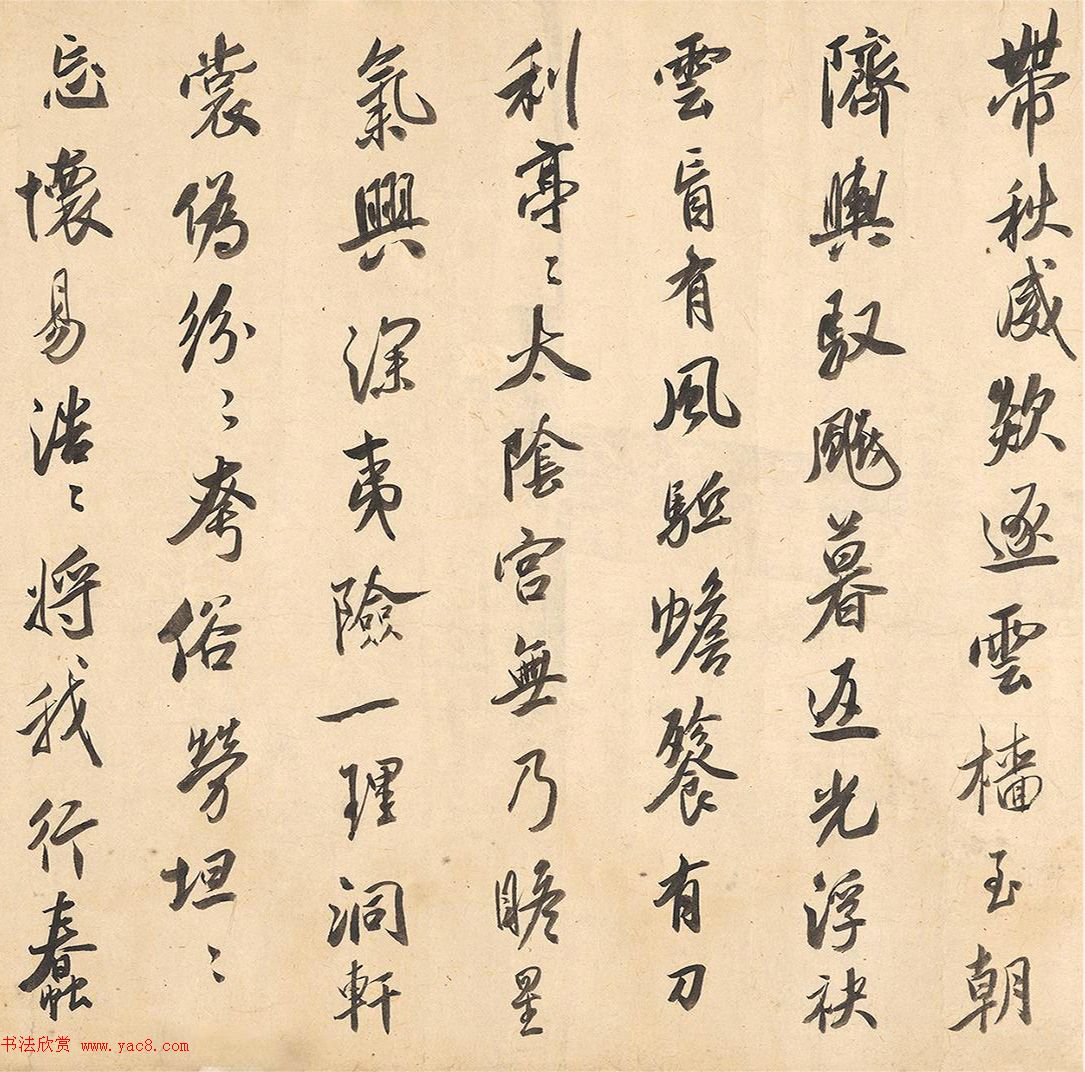 帶秋威欻逐雲檣至朝
隮輿馭飈暮返光浮袂
雲盲有風驅蟾餮有刀
利亭〻太陰宮無乃瞻星
氣興深夷險一理洞軒
裳偽紛〻夸俗勞坦〻
忘懷易浩〻將我行蠢
书法欣赏 www.yac8.com